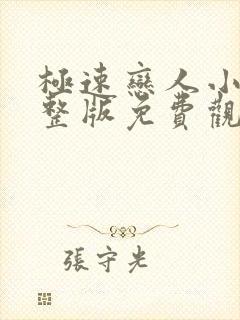 極速戀人小
整版免費觀
張守光